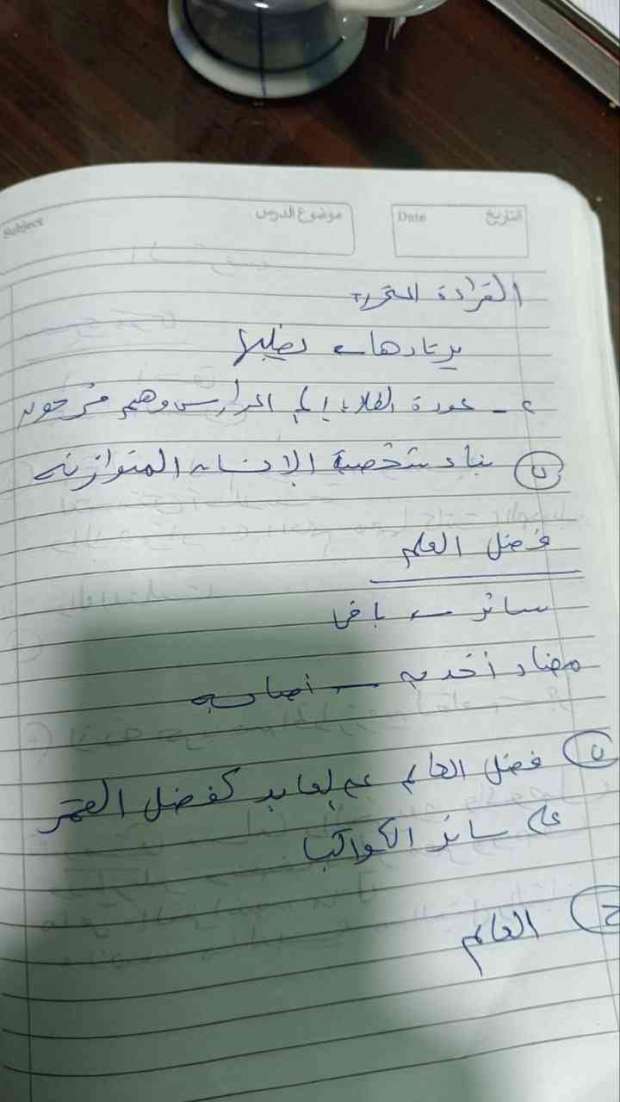 Subject موضوع الدرس Date التاريخ
القراءة المتحررة
يرتادها ← يطلبها
٢ - عودة الطلاب إلى المدارس وهم فرحون
ب بناء شخصية الإنسان المتوازنه
فضل العلم
سائر ← باقي
مضاد أخذ به ←
ب فضل العالم على العابد كفضل القمر
على سائر الكواكب
ج العالم